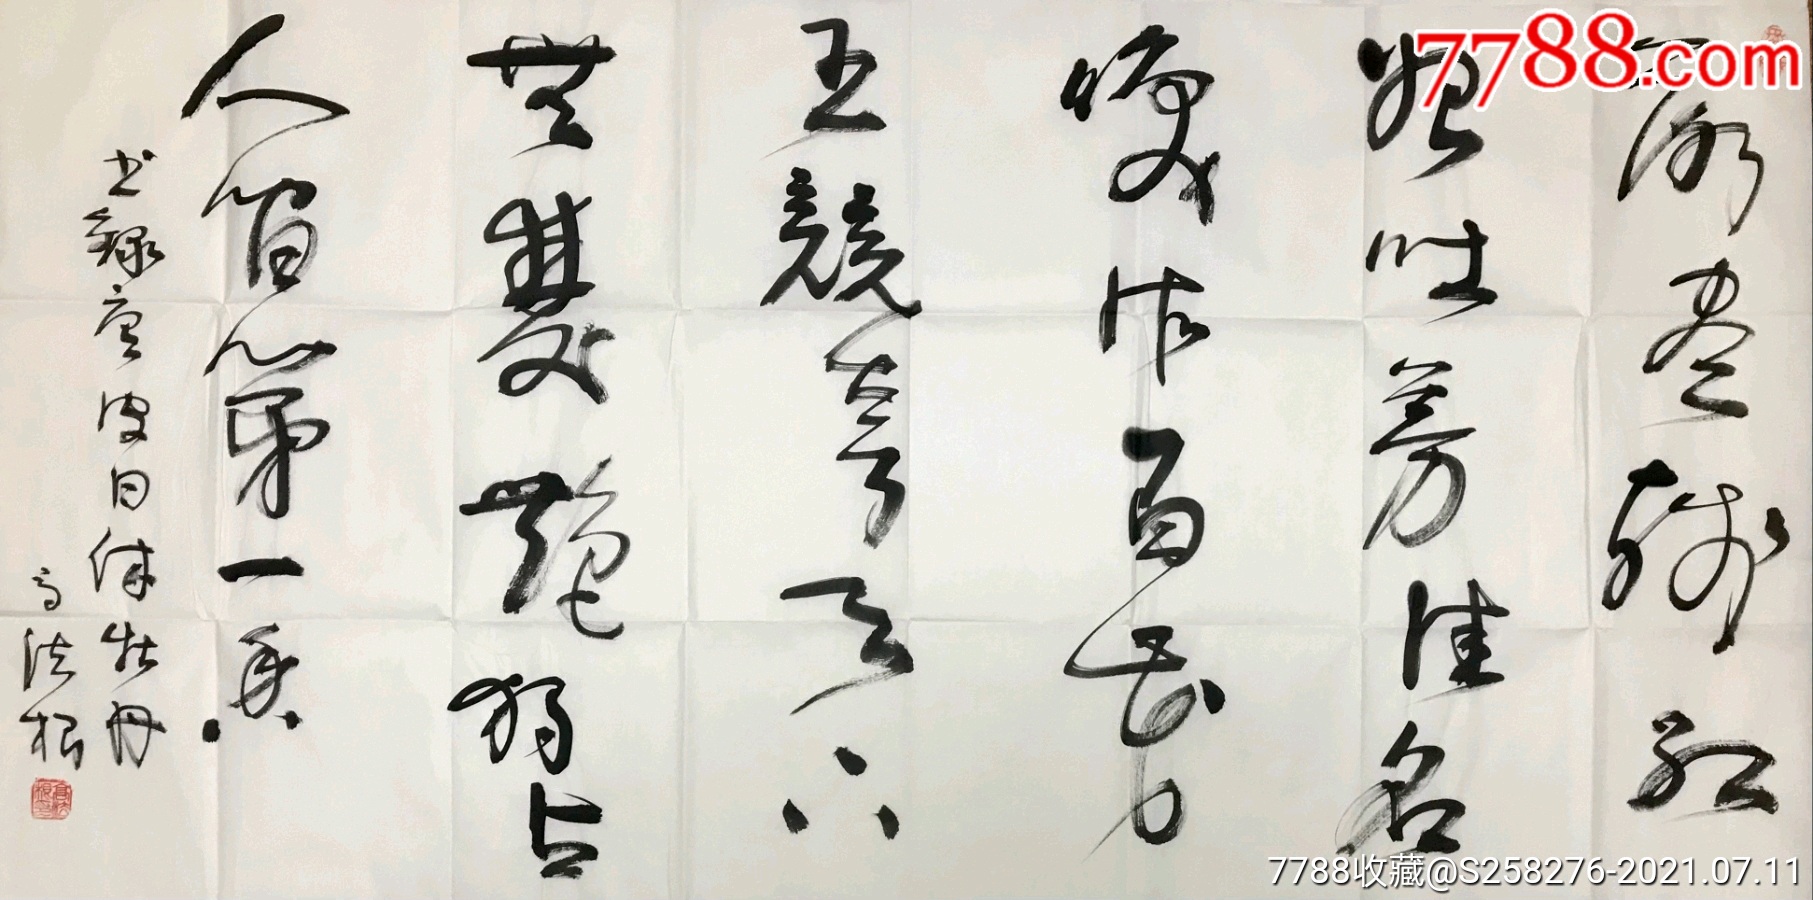 落盡殘紅
始吐芳佳名
喚作百花
王競夸天下
無雙艷獨占
人間第一香
书録唐皮日休牡丹
高法根
7788.com
7788收藏@S258276-2021.07.11